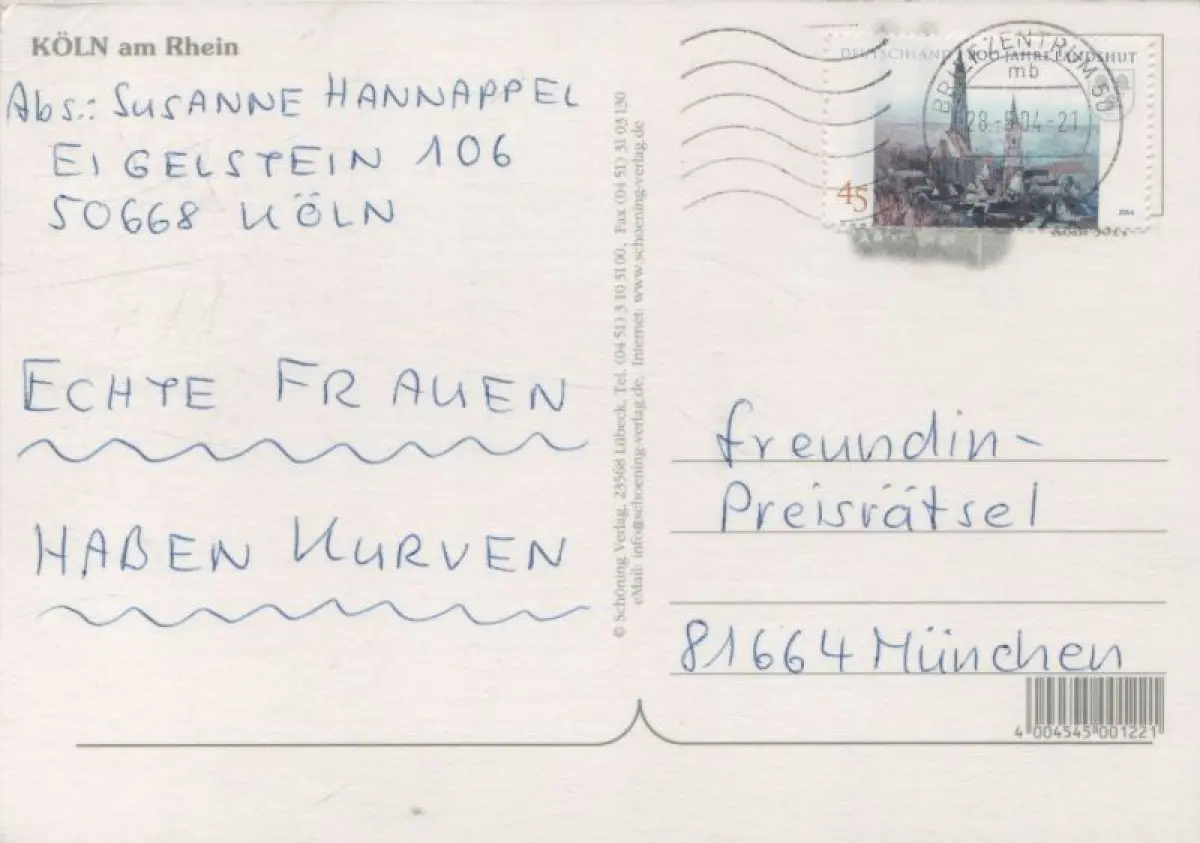 KÖLN am Rhein
Abs.: SUSANNE HANNAPPEL
EIGELSTEIN 106
50668 KÖLN
ECHTE FRAUEN
HABEN KURVEN
© Schöning Verlag, 23568 Lübeck, Tel. (04 51) 3 10 31 00, Fax (04 51) 31 03 130
eMail: info@schoening-verlag.de, Internet: www.schoening-verlag.de
DEUTSCHLAND 800 JAHRE LANDSHUT
45
2004
BRIEFZENTRUM 50
mb
04-21
freundin-
Preisrätsel
81664 München
4 004545 001221